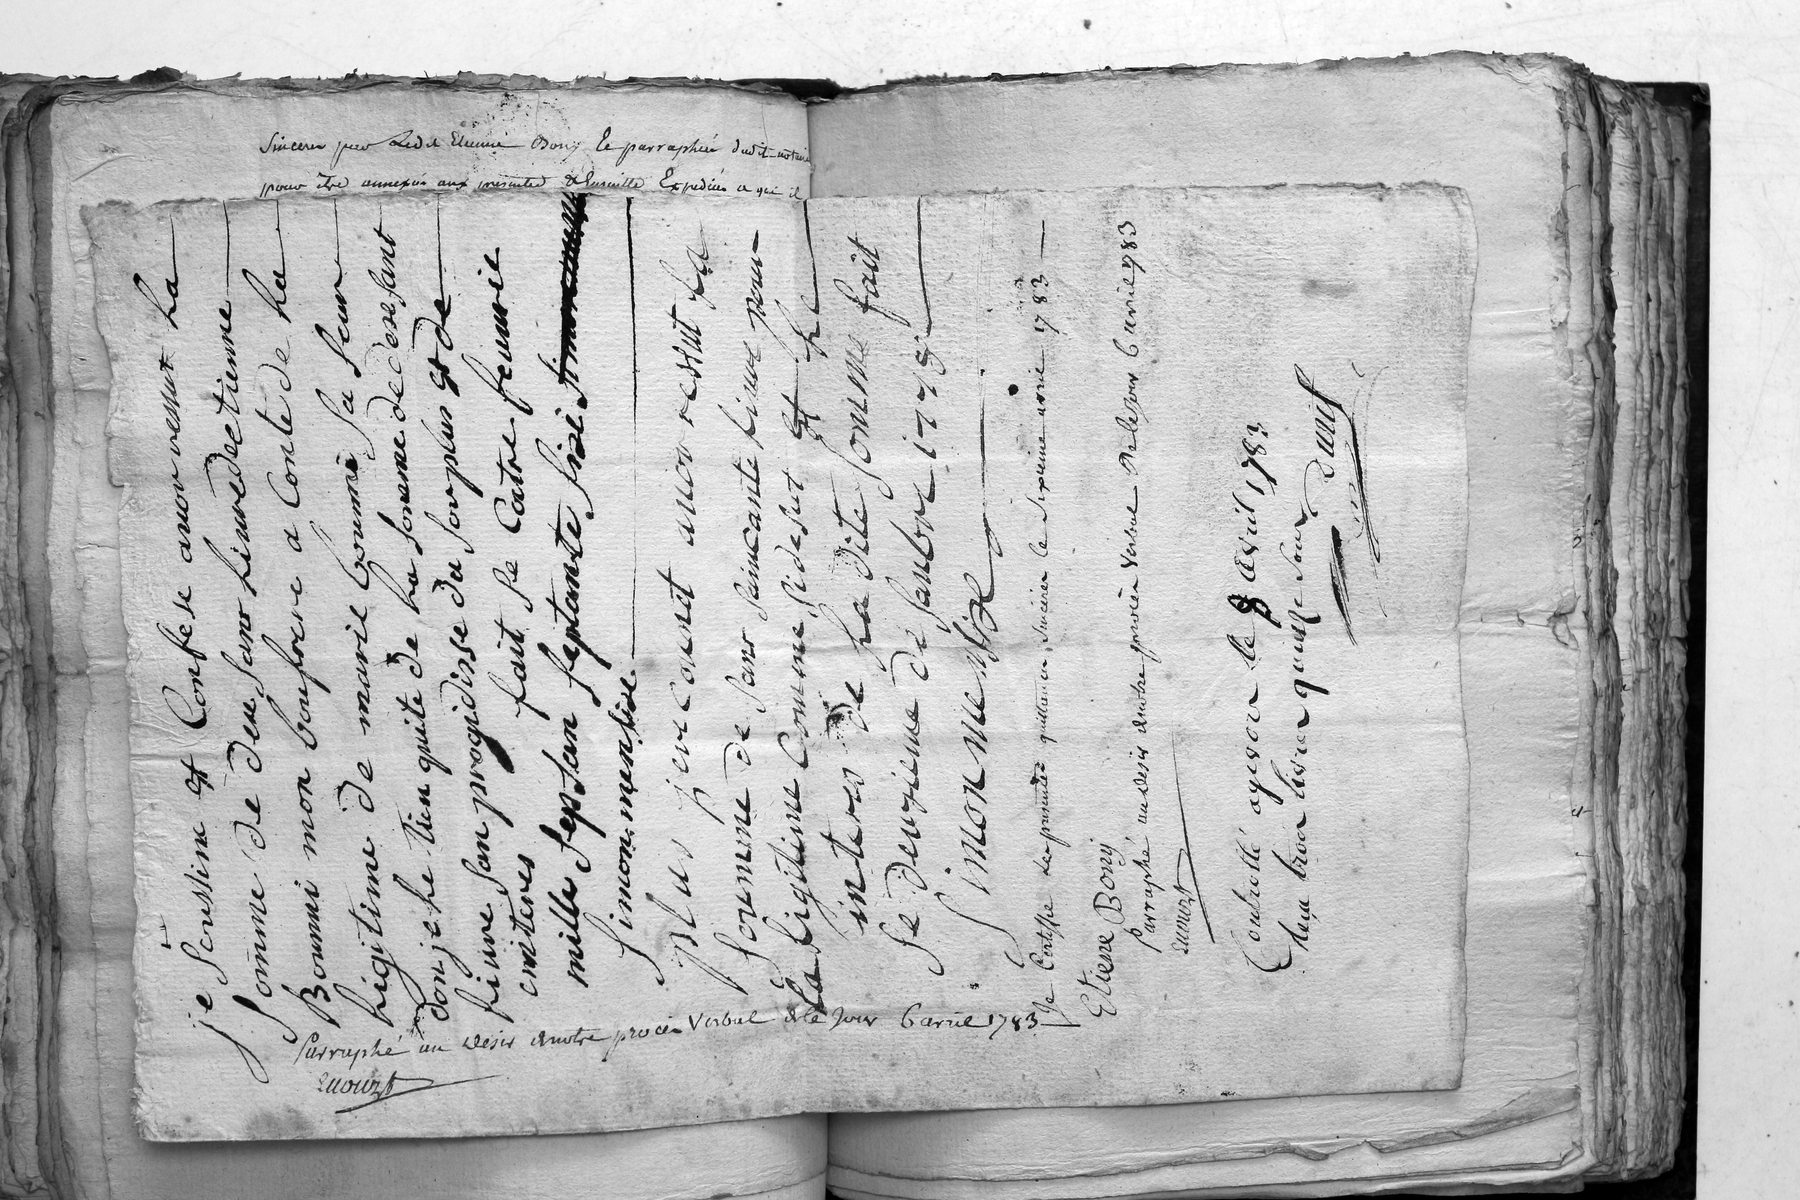 Sincerer par Led.t Etienne Bony le parraphée dudit notaire
pour être annexés aux presentes & Ensuitte Expediées a qui il
je Soussine et Confese auoir ressut La
Somme de deux Sans Liures dectienne
Bonni mon boufrere a Conte de La
Ligitime de marie bounie Sa Seur
don je he tien quite de La Somme de desant
Liure San progidisse du Sourplus et de
cniteres fait Se Catre feuurie
mille Sep San Septante Size
Simon mensize
plus jencouret auoir ressut La
Soumme de Sans Saincante Liure pour
La Ligitime Comme sidesut et Le
interes de La dite Somme fait
Se deuzieme de Sanbre 1778
Simon mensize
Je Certiffie les presentes quittances, Sincerer le Sixieme avril 1783
Etiene Bony
Parraphé au desir denotre procès Verbal De le Jour 6 avril 1783
Controllé agisore le 8 avril 1783
Recu trois livres quinze Sous
Parraphé au desir denotre procès Verbal de le Jour 6 avril 1783